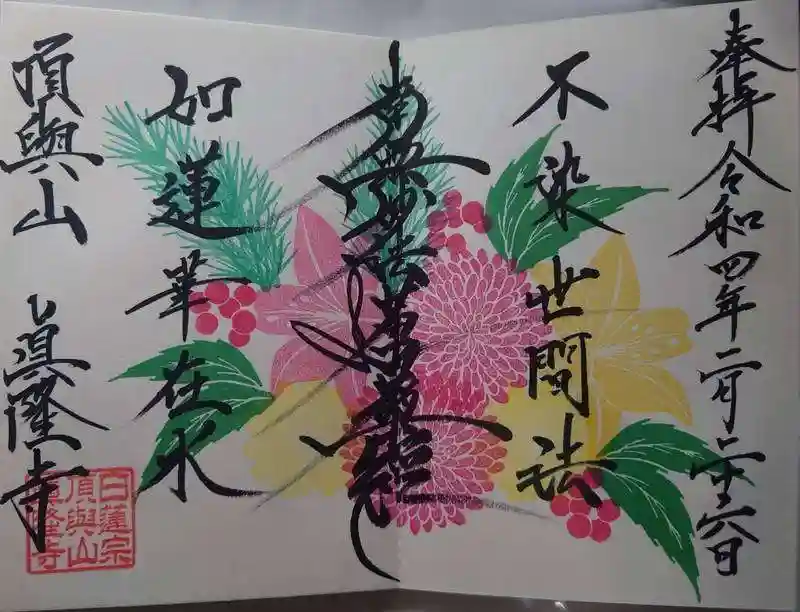 奉拝 令和四年二月二十六日
不染世間法
南無妙法蓮華経
如蓮華在水
頂與山 眞隆寺
日蓮宗
頂與山
眞隆寺